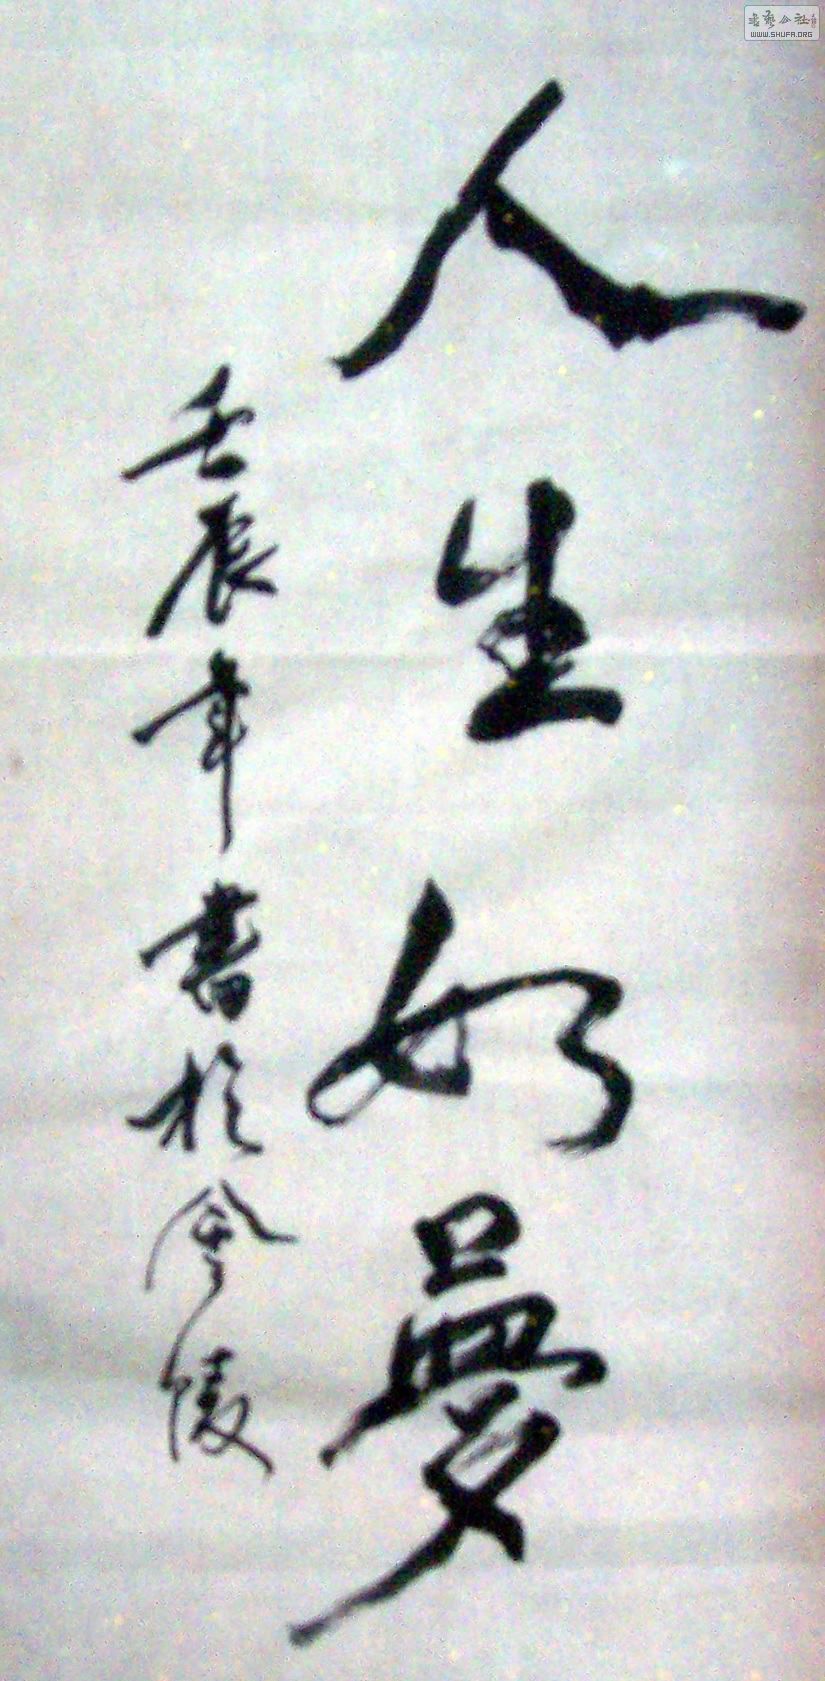 人生如夢
壬辰年書於金陵
书艺公社
WWW.SHUFA.ORG